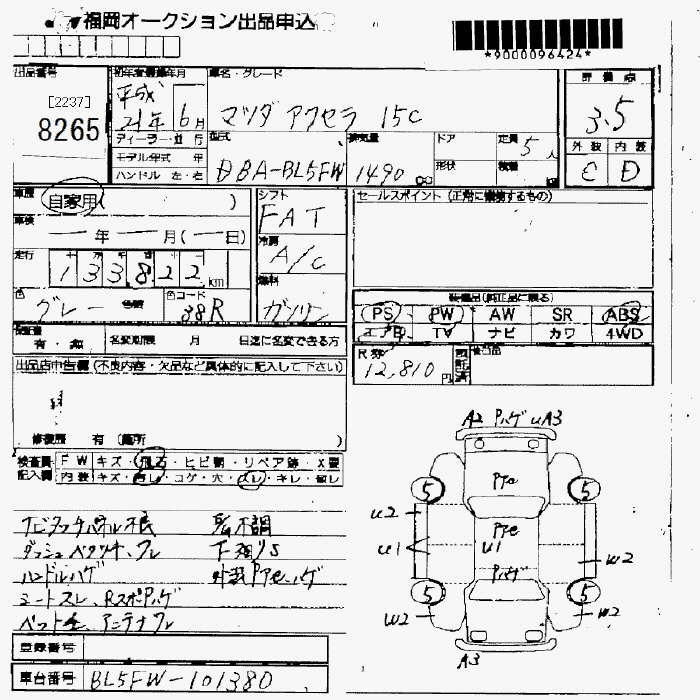 福岡オークション出品申込
*9000096424*
出品番号 初年度登録年月 車名・グレード 評価点
[2237] 平成
8265 21年 6月 マツダ アクセラ 15C 3.5
ディーラー・並行 型式 排気量 ドア 定員 5人 外装 内装
モデル年式 年
ハンドル 左・右 DBA-BL5FW 1490 cc 形状 積載 kg C D
車歴 自家用( ) シフト FAT セールスポイント(正常に機能するもの)
車検 年 月(ー日) 冷房 A/C
走行 133822 km 燃料 ガソリン
色 グレー 色替 色コード 38R
装備品(純正品に限る)
PS PW AW SR ABS
エアB TV ナビ カワ 4WD
有・無 名変期限 月 日迄に名変できる方
R券 12,810円
出品店申告欄(不良内容・欠品など具体的に記入して下さい)
修復歴 有(箇所 )
検査員 FW キズ・飛石・ヒビ割・リペア跡・X要
記入欄 内装 キズ・コゲ・穴・スレ・キレ
A2 ハゲ U A3
5 5
U2 U1 U1 W2
5 5
W2 W2
A3
ナビタッチパネル不良
ダッシュベタツキ、スレ 下廻りS
ハンドルハゲ
シートスレ、Rスポハゲ
ペット毛、アンテナスレ
登録番号
車台番号 BL5FW-101380